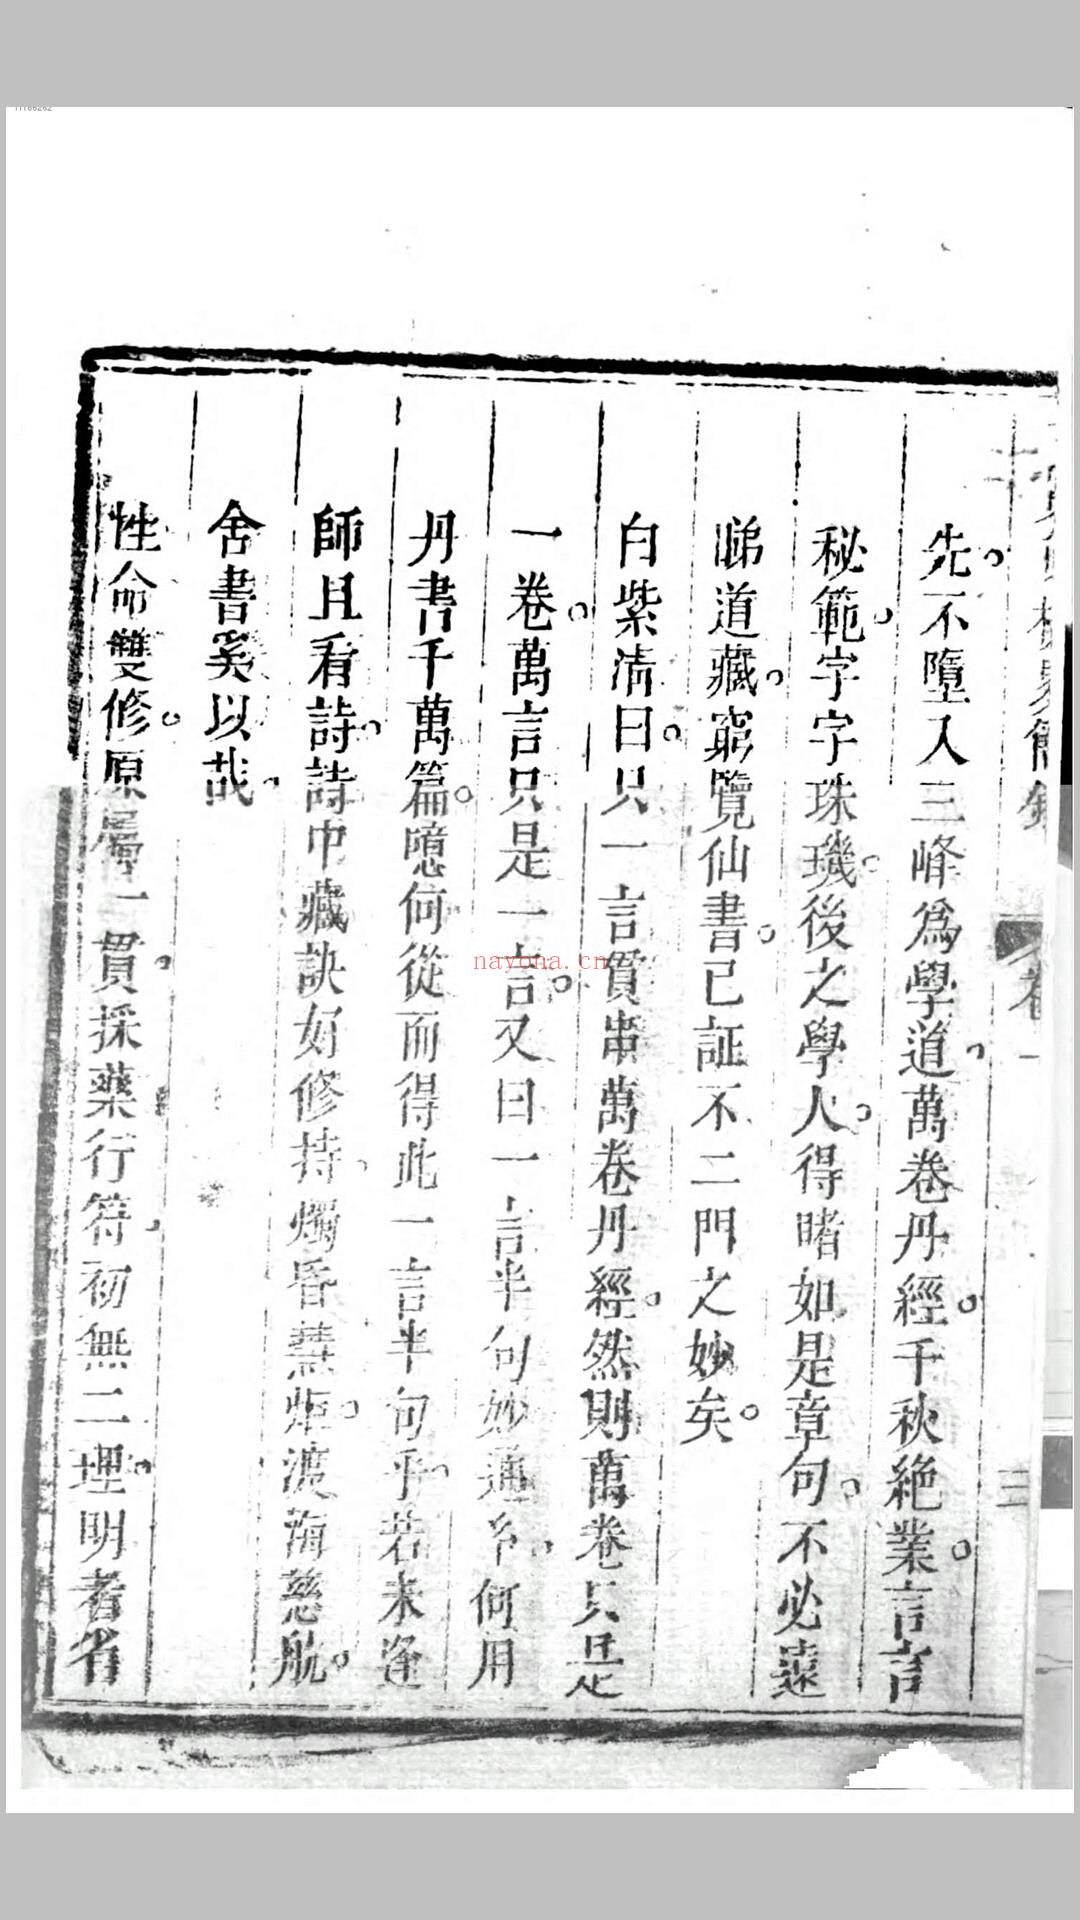 先不墮入三峰為學道萬卷丹經千秋絕業言言
秘範字字珠璣後之學人得睹如是章句不必遠
睇道藏窮覽仙書已証不二門之妙矣
白紫清曰只一言貫串萬卷丹經然則萬卷只是
一卷萬言只是一言又曰一言半句妙通何用
丹書千萬篇噫何從而得此一言半句乎若未逢
師且看詩詩中藏訣好修持燭昏慧炬渡海慈航
舍書奚以哉
性命雙修原屬一貫採藥行符初無二理明者省
卷一
三
nayona.cn
11166262